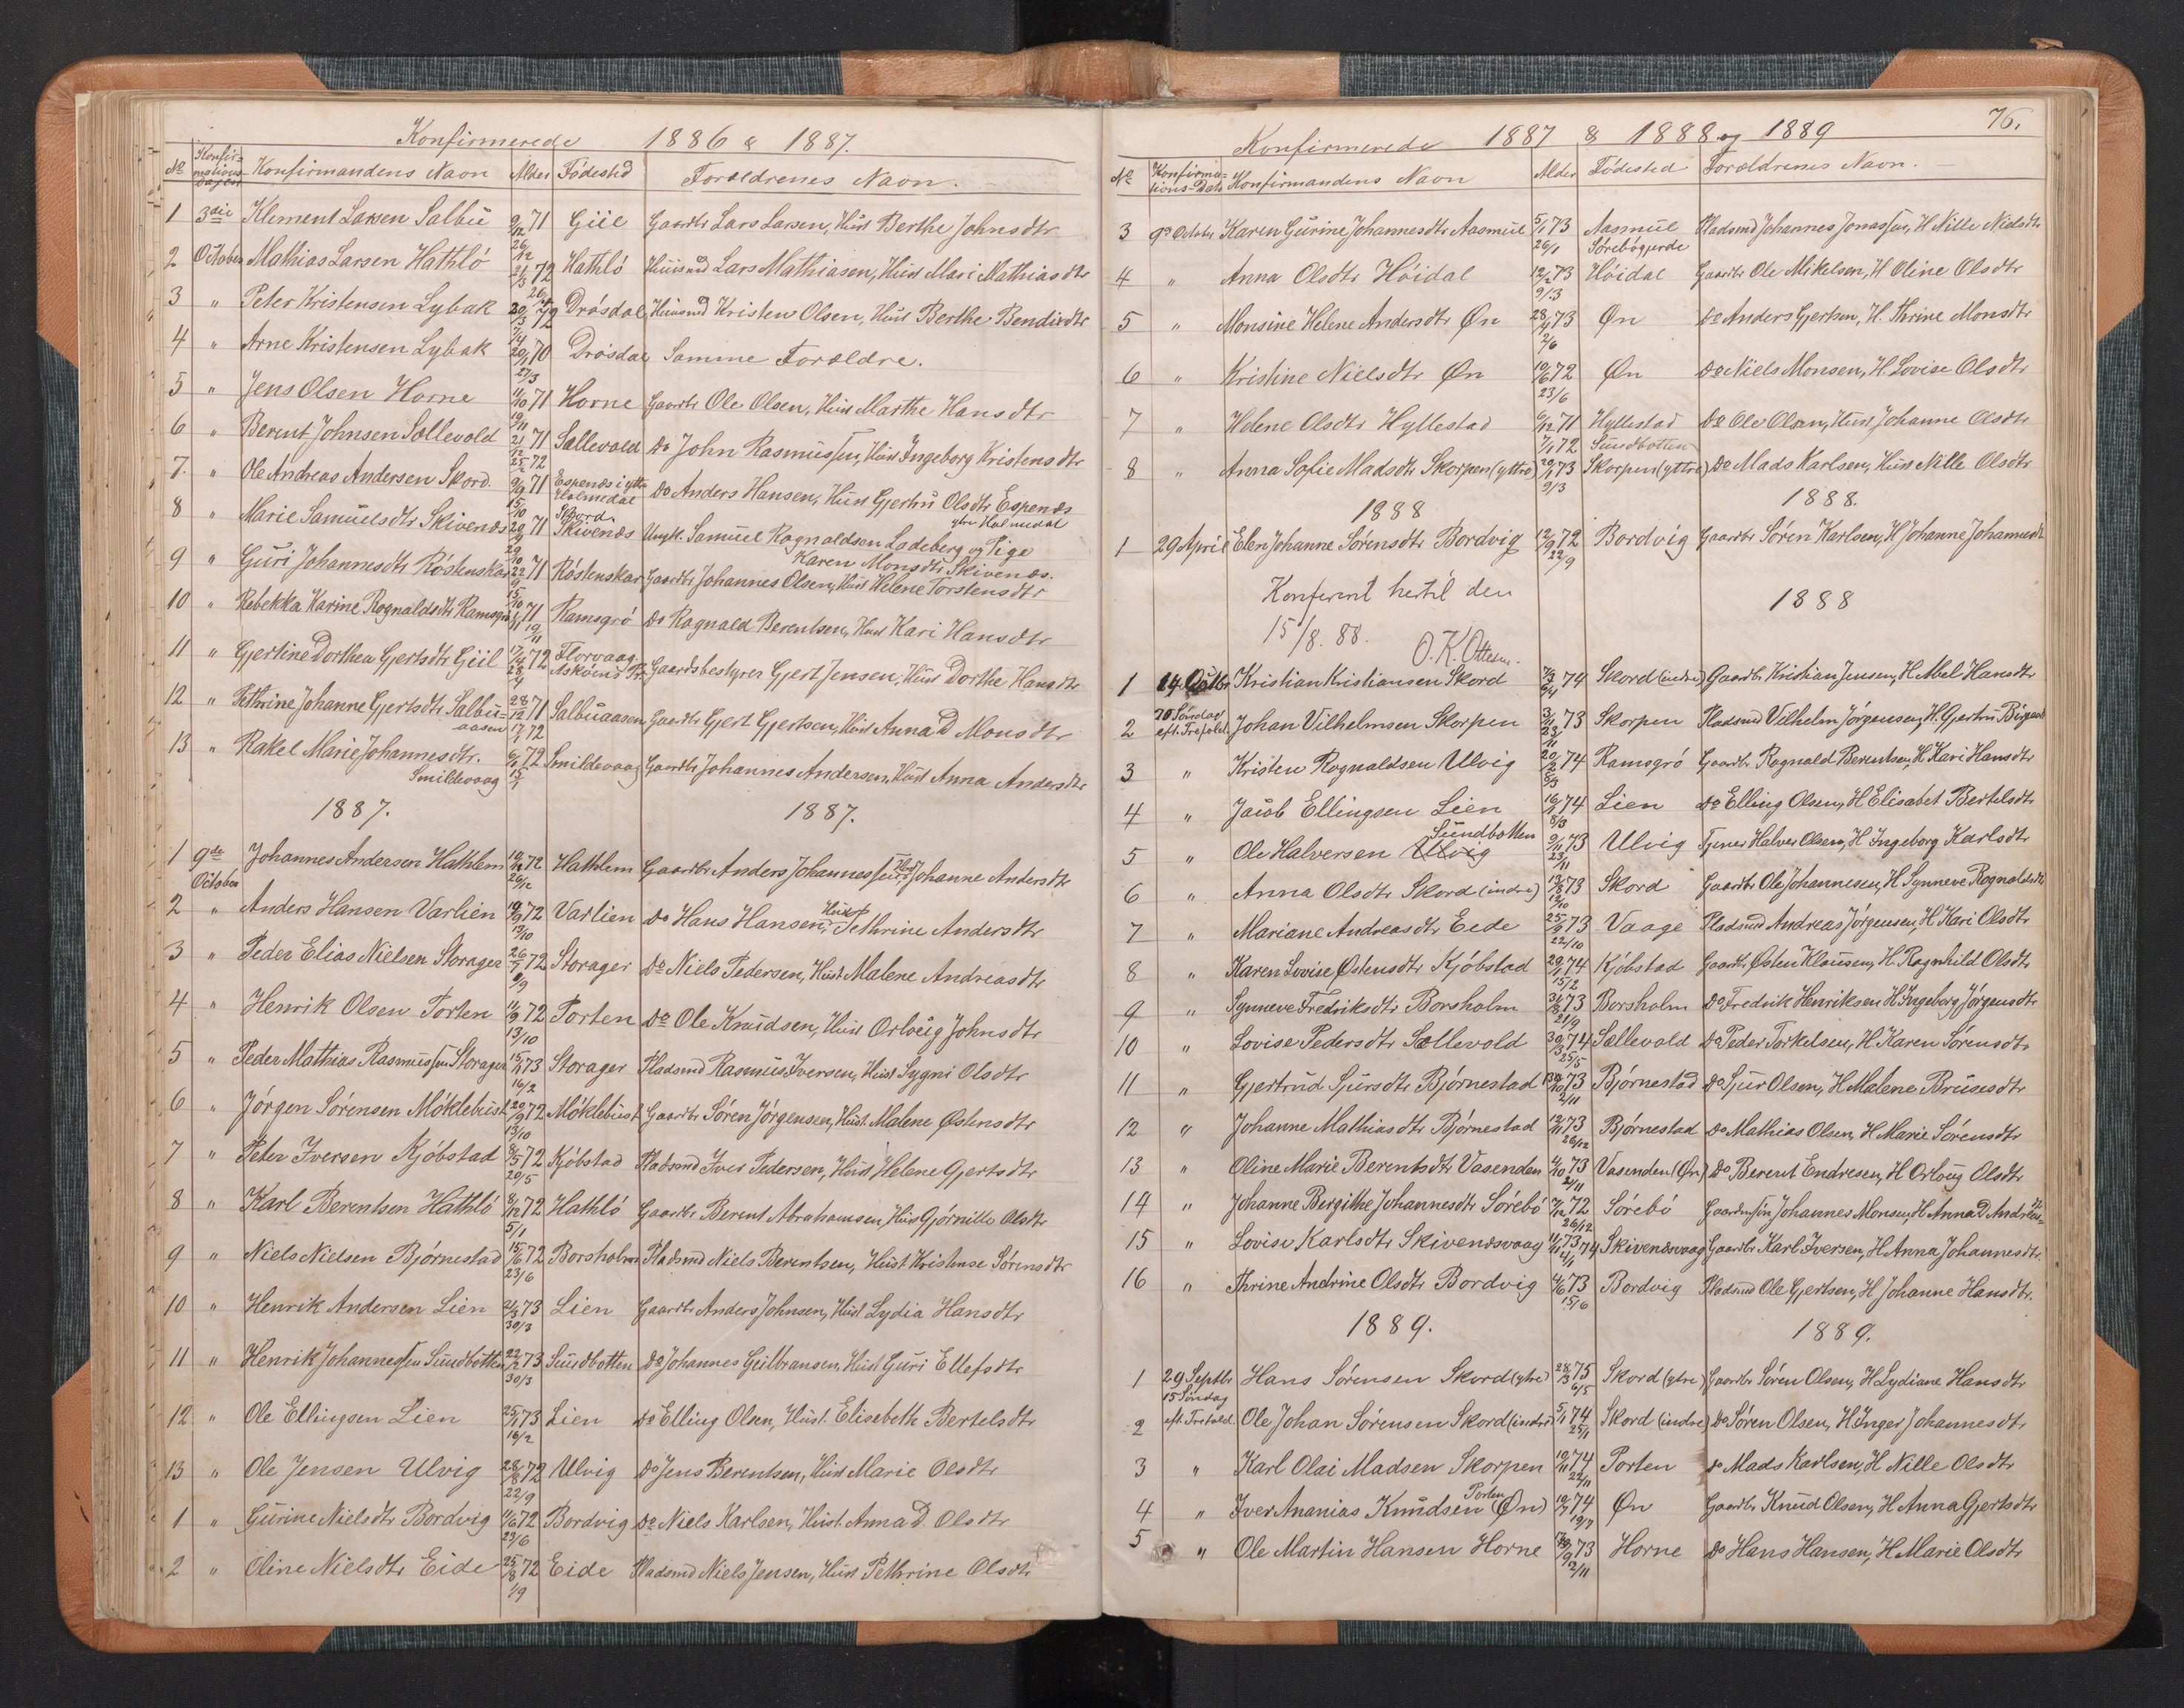 Konfirmerede 1886 & 1887.
No Konfirmationsdagen Konfirmandens Navn Alder Födested Foræeldrenes Navn.
1 3die Klement Larsen Salbu 9/12 71 Giil Gaardbr Lars Larsen, Hust Berthe Johnsdtr
26/12
2 October Mathias Larsen Hathlö 21/3 72 Hathlö Huusmd Lars Mathiasen, Hust Mari Mathiasdtr
3 " Peter Kristensen Lybak 20/3 72 Drösdal Huusmd Kristen Olsen, Hust Berthe Bendixdtr
4 " Arne Kristensen Lybak 20/1 70 Drösdal Samme Forældre.
27/3
5 " Jens Olsen Horne 11/10 71 Horne Gaardbr Ole Olsen, Hust Marthe Hansdtr
19/11
6 " Berent Johnsen Sællevold 21/12 71 Sællevold Do John Rasmussen, Hust Ingeborg Kristensdtr
25/2 72
7. " Ole Andreas Andersen Skord. 9/9 71 Espenæs i yttre Holmedal Do Anders Hansen, Hust Gjertru Olsdtr Espenæs
15/10 Skord. ytre Holmedal
8 " Marie Samuelsdtr Skivenæs 20/9 71 Skivenæs Ungk. Samuel Rognaldsen Ladeberg og Pige
29/10 Karen Monsdtr Skivenæs.
9 " Guri Johannesdtr Röstenskar 22/9 71 Röstenskar Gaardbr Johannes Olsen, Hust Helene Torstensdtr
15/10
10 " Rebekka Karine Rognaldsdtr Ramsgrö 71 Ramsgrö Do Rognald Berentsen, Hust Kari Hansdtr
19/11
11 " Gjertine Dorthea Gjertsdtr Giil 72 Florvaag Gaardsbestyrer Gjert Jensen, Hust Dorthe Hansdtr
Asköind Pr.
12 " Pethrine Johanne Gjertsdtr Salbu= 28/12 71 Salbuaasen Gaardbr Gjert Gjertsen, Hust Anna D Monsdtr
aasen 72
13 " Rakel Marie Johannesdtr. 6/1 72 Smildevaag Gaardbr Johannes Andersen, Hust Anna Andersdtr
Smildevaag
1887. 1887.
1 9de Johannes Andersen Hathlem 72 Hathlem Gaardbr Anders Johannessen, Hust Johanne Andersdtr
October 26/12
2 " Anders Hansen Varlien 19/9 72 Varlien Do Hans Hansen, Hust Pethrine Andersdtr
13/10
3 " Peder Elias Nielsen Storager 26/7 72 Storager Do Niels Pedersen, Hust Malene Andreasdtr
4 " Henrik Olsen Porten 11/9 72 Porten Do Ole Knudsen, Hust Orloug Johnsdtr
13/10
5 " Peder Mathias Rasmussen Storager 15/1 73 Storager Pladsmd Rasmus Iversen, Hust Sygni Olsdtr
16/2
6 " Jörgen Sörensen Möklebust 20/9 72 Möklebust Gaardbr Sören Jörgensen, Hust. Malene Östensdtr
13/10
7 " Peter Iversen Kjöbstad 8/5 72 Kjöbstad Pladsmd Iver Pedersen, Hust Helene Gjertsdtr
20/5
8 " Karl Berentsen Hathlö 8/12 72 Hathlö Gaardbr Berent Abrahamsen, Hust Gjörnille Olsdtr
5/1
9 " Niels Nielsen Björnestad 15/6 72 Borsholm Pladsmd Niels Berentsen, Hust Kristense Sörensdtr
23/6
10 " Henrik Andersen Lien 2/3 73 Lien Gaardbr Anders Johnsen, Hust Lydia Hansdtr
30/3
11 " Henrik Johannessen Sundbotten 22/2 73 Sundbotten Do Johannes Gulbransen, Hust Guri Ellefsdtr
30/3
12 " Ole Ellingsen Lien 25/1 73 Lien Do Elling Olsen, Hust. Elisebeth Bertelsdtr
16/2
13 " Ole Jensen Ulvig 28/8 72 Ulvig Do Jens Berentsen, Hust Marie Olsdtr
22/9
1 " Gurine Nielsdtr Bordvig 11/6 72 Bordvig Do Niels Karlsen, Hust. Anna D. Olsdtr
23/6
2 " Oline Nielsdtr Eide 25/8 72 Eide Pladsmd Niels Jensen, Hust Pethrine Olsdtr
1/9
76.
Konfirmerede 1887 & 1888 og 1889
No Konfirmations-Dato Konfirmandens Navn Alder Födested Forældrenes Navn.
3 9de Octobr Karen Gurine Johannesdtr Aasmul 5/1 73 Aasmul Pladsmd Johannes Jonassen, H Nille Nielsdtr
26/1 Sörebögjerde
4 " Anna Olsdtr Höidal 12/2 73 Höidal Gaardbr Ole Mikelsen, H Oline Olsdtr
9/3
5 " Monsine Helene Andersdtr Øn 28/4 73 Øn Do Anders Gjertsen, H. Thrine Monsdtr
2/6
6 " Kristine Nielsdtr Øn 19/6 72 Øn Do Niels Monsen, H. Lovise Olsdtr
23/6
7 " Helene Olsdtr Hyllestad 6/12 71 Hyllestad Do Ole Olsen, Hust Johanne Olsdtr
7/1 72 Sundbotten
8 " Anna Sofie Madsdtr Skorpen (yttre) 29/1 73 Skorpen (yttre) Do Mads Karlsen, Hust Nille Olsdtr
9/3
1888 1888.
1 29 April Elen Johanne Sörensdtr Bordvig 12/9 72 Bordvig Gaardbr Sören Karlsen, H Johanne Johannesdt
22/9
Konferert hertil den 1888
15/8. 88. O. K. Ottesen.
1 14. Octbr Kristian Kristiansen Skord 74 Skord (indre) Gaardbr Kristian Jensen, H. Abel Hansdtr
2 20 Söndag eft. Trefoldi. Johan Vilhelmsen Skorpen 3/11 73 Skorpen Pladsmd Vilhelm Jörgensen, H. Gjertru
23/11
3 " Kristen Rognaldsen Ulvig 20/2 74 Ramsgrö Gaardbr. Rognald Berentsen, H Kari Hansdtr
4 " Jacob Ellingsen Lien 74 Lien Do Elling Olsen, H Elisabet Bertelsdtr
8/3
Sundbotten
5 " Ole Halversen Ulvig 9/11 73 Ulvig Tjener Halver Olsen, H Ingeborg Karlsdtr
23/11
6 " Anna Olsdtr Skord (indre) 73 Skord Gaardbr Ole Johannesen, H. Synneve Rognaldsdtr
12/10
7 " Mariane Andreasdtr Eide 25/9 73 Vaage Pladsmd Andreas Jörgensen, H Kari Olsdtr
22/10
8 " Karen Lovise Östensdtr Kjöbstad 29/1 74 Kjöbstad Gaardbr Østen Klausen, H. Ragnhild Olsdtr
15/2
9 " Synneve Fredriksdtr Borsholm 31/8 73 Borsholm Do Fredrik Henriksen H Ingeborg Jörgensdtr
21/9
10 " Lovise Pedersdtr Sællevold 30/3 74 Sællevold Do Peder Torkelsen, H. Karen Sörensdtr
25/5
11 " Gjertrud Sjursdtr Björnestad 73 Björnestad Do Sjur Olsen, H Malene Brusesdtr
2/11
12 " Johanne Mathiasdtr Björnestad 12/11 73 Björnestad Do Mathias Olsen, H Marie Sörensdtr
26/12
13 " Oline Marie Berentsdtr Vasenden 4/10 73 Vasenden (Øn) Do Berent Endresen, H Orloug Olsdtr
2/11
14 " Johanne Bergithe Johannesdtr Sörebö 7/12 72 Sörebö Johannes Monsen, H Anna D Andreas=
26/12
15 " Lovise Karlsdtr Skivenæsvaag 73 Skivenæsvaag Gaardbr Karl Iversen, H Anna Johannesdtr.
4/1 74
16 " Thrine Andrine Olsdtr Bordvig 4/6 73 Bordvig Pladsmd Ole Gjertsen, H Johanne Hansdtr.
15/6
1889. 1889.
1 29 Septbr Hans Sörensen Skord (ytre) 28/3 75 Skord (ytre) Gaardbr Sören Olsen, H Lydiane Hansdtr
15 Söndag 6/5
2 eft. Trefold. Ole Johan Sörensen Skord (indre) 5/1 74 Skord (indre) Do Sören Olsen, H Inger Johannesdtr
25/1
3 " Karl Olai Madsen Skorpen 19/11 74 Porten Do Mads Karlsen, H Nille Olsdtr
22/11
Porten
4 " Iver Ananias Knudsen (Øn) 10/7 74 Øn Gaardbr Knud Olsen, H Anna Gjertsdtr
19/7
5 " Ole Martin Hansen Horne 73 Horne Do Hans Hansen, H Marie Olsdtr
2/11